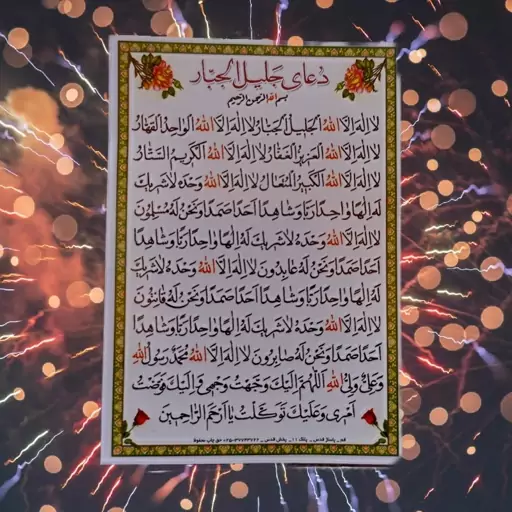 دعای جلیل الجبار
بسم الله الرحمن الرحیم
لا اِلهَ اِلَّا اللهُ الْجَلیلُ الْجَبّارُ لا اِلهَ اِلَّا اللهُ الْواحِدُ الْقَهّارُ
لا اِلهَ اِلَّا اللهُ الْعَزیزُ الْغَفّارُ لا اِلهَ اِلَّا اللهُ الْکَریمُ السَّتّارُ
لا اِلهَ اِلَّا اللهُ الْکَبیرُ الْمُتَعالُ لا اِلهَ اِلَّا اللهُ وَحْدَهُ لا شَریكَ
لَهُ اِلهًا واحِدًا رَبًّا وَ شاهِدًا اَحَدًا صَمَدًا وَ نَحْنُ لَهُ مُسْلِمُونَ
لا اِلهَ اِلَّا اللهُ وَحْدَهُ لا شَریكَ لَهُ اِلهًا واحِدًا رَبًّا وَ شاهِدًا
اَحَدًا صَمَدًا وَ نَحْنُ لَهُ عابِدُونَ لا اِلهَ اِلَّا اللهُ وَحْدَهُ لا شَریكَ
لَهُ اِلهًا واحِدًا رَبًّا وَ شاهِدًا اَحَدًا صَمَدًا وَ نَحْنُ لَهُ قانِتُونَ
لا اِلهَ اِلَّا اللهُ وَحْدَهُ لا شَریكَ لَهُ اِلهًا واحِدًا رَبًّا وَ شاهِدًا
اَحَدًا صَمَدًا وَ نَحْنُ لَهُ صابِرُونَ لا اِلهَ اِلَّا اللهُ مُحَمَّدٌ رَسُولُ اللهِ
وَ عَلِیٌّ وَلِیُّ اللهِ اَللّهُمَّ اِلَیْكَ وَجَّهْتُ وَجْهی وَ اِلَیْكَ فَوَّضْتُ
اَمْری وَ عَلَیْكَ تَوَکَّلْتُ یا اَرْحَمَ الرّاحِمینَ
قم _ پاساژ قدس _ پلاک ١١ _ پخش قدس _ حق چاپ محفوظ